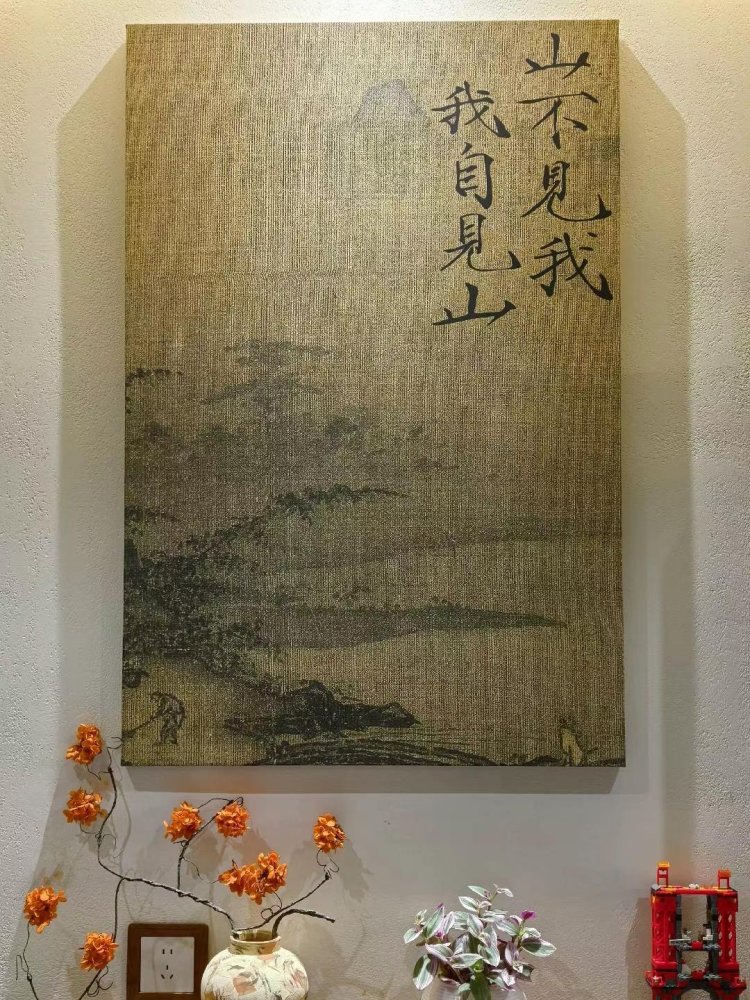 山不见我
我自見山